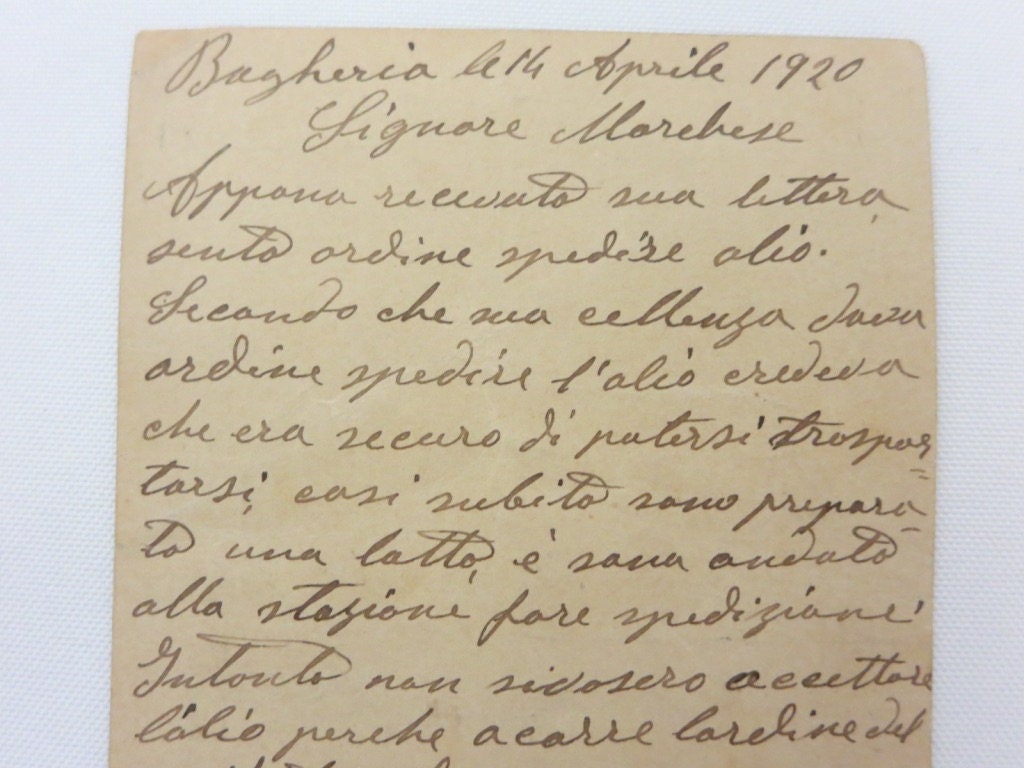 Bagheria le 14 Aprile 1920
Signore Marchese
Appana recevuto sua lettera,
sento ordine spedire olio.
Secondo che sua cellenza dava
ordine spedire l'olio credeva
che era securo di potersi traspor=
tarsi, cosi subito sono prepara-
to una latta, è sono andato
alla stazione fare spedizione
Intanto non sivosero accettare
l'olio perche acorre lordine del